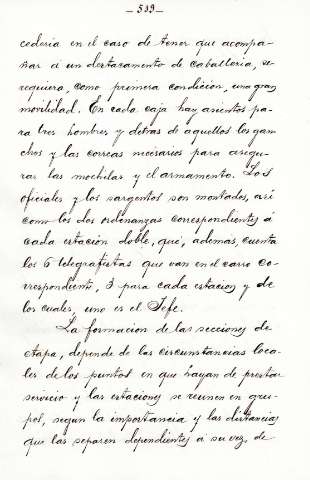 -539-
cedería en el caso de tener que acompa-
ñar á un destacamento de Caballería, se-
requiera, como primera condición, una gran
movilidad. En cada caja hay asientos pa-
ra tres hombres y detrás de aquellos los gan-
chos y las correas necesarios para asegu-
rar las mochilas y el armamento. Los
oficiales y los sargentos son montados, así
como los dos ordenanzas correspondientes á
cada estación doble, que, además, cuenta
los 6 telegrafistas que van en el carro co-
rrespondiente, 3 para cada estación y de
los cuales, uno es el Jefe.
La formación de las secciones de
etapa, depende de las circunstancias loca-
les de los puntos en que hayan de prestar
servicio y las estaciones se reunen en gru-
pos, según la importancia y las distancias
que las separen dependientes á su vez, de